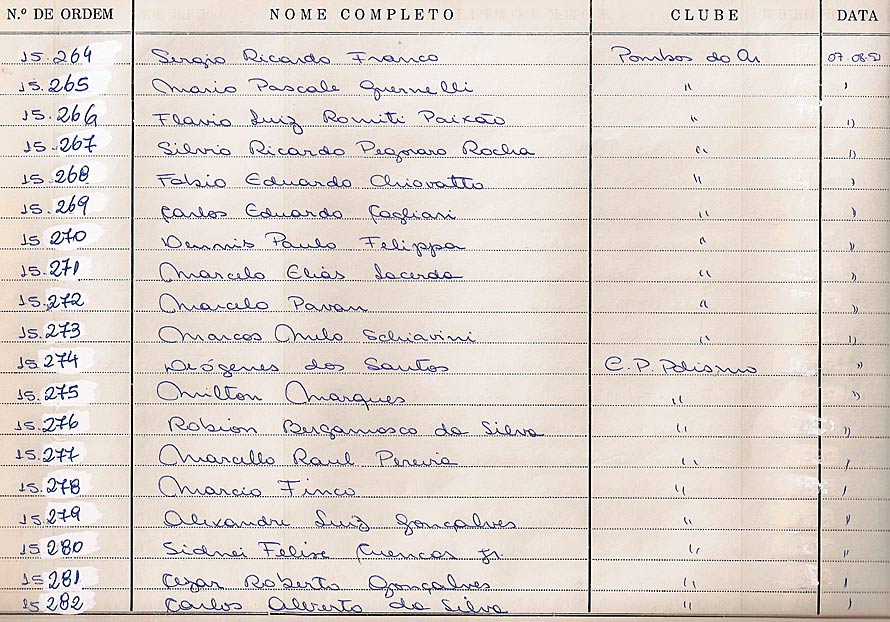 N.º DE ORDEM NOME COMPLETO CLUBE DATA
15.264 Sergio Ricardo Franco Pombos do Ar 07.08.
15.265 Mario Pascale Guernelli " "
15.266 Flavio Luiz Romiti Paixão " "
15.267 Silvio Ricardo Pegoraro Rocha " "
15.268 Fabio Eduardo Chiovatto " "
15.269 Carlos Eduardo Cagliari " "
15.270 Dennis Paulo Felippa " "
15.271 Marcelo Elias Lacerda " "
15.272 Marcelo Pavan " "
15.273 Marcos Melo Schiavini " "
15.274 Diógenes dos Santos C.P. Polismo "
15.275 Milton Marques " "
15.276 Robion Bergamasco da Silva " "
15.277 Marcello Raul Pereira " "
15.278 Marcio Finco " "
15.279 Alexandre Luiz Gonçalves " "
15.280 Sidnei Felise Cuencas Jr. " "
15.281 Cezar Roberto Gonçalves " "
15.282 Carlos Alberto da Silva " "